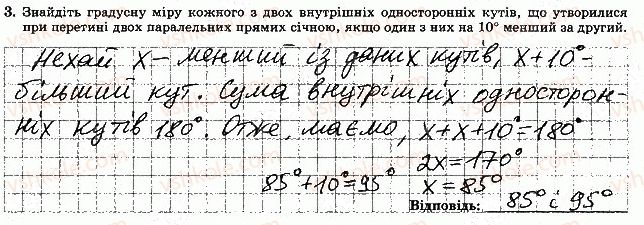 3. Знайдіть градусну міру кожного з двох внутрішніх односторонніх кутів, що утворилися
при перетині двох паралельних прямих січною, якщо один з них на 10° менший за другий.
Нехай x – менший із даних кутів, x+10° –
більший кут. Сума внутрішніх односторон-
ніх кутів 180°. Отже, маємо, x+x+10°=180°
2x=170°
85°+10°=95° x=85°
Відповідь: 85° і 95°